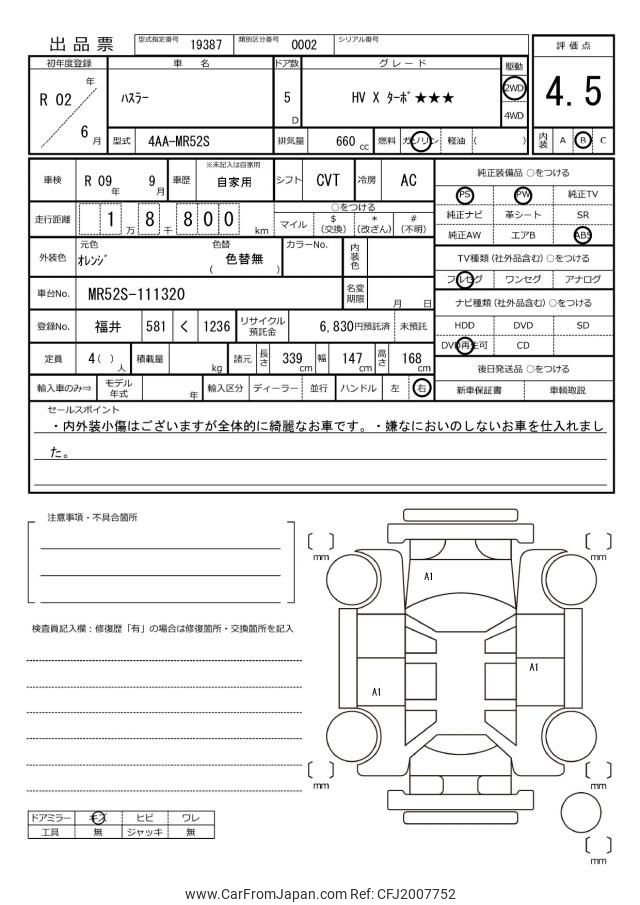 出品票 型式指定番号 19387 類別区分番号 0002 シリアル番号
評価点
4.5
内装 A B C
初年度登録 車名 ドア数 グレード 駆動
R 02 年 6 月
ハスラー 5 D HV X ターボ ★★★ 2WD
4WD
型式 4AA-MR52S 排気量 660 cc 燃料 ガソリン 軽油 ( )
※未記入は自家用
車検 R 09 年 9 月 車歴 自家用 シフト CVT 冷房 AC
走行距離 1 万 8 千 8 0 0 km
○をつける
マイル $ (交換) * (改ざん) # (不明)
外装色 元色 オレンジ 色替 ( 色替無 ) カラーNo. 内装色
車台No. MR52S-111320 名変期限 月 日
登録No. 福井 581 く 1236 リサイクル預託金 6,830円預託済 未預託
定員 4( ) 人 積載量 kg 諸元 長さ 339 cm 幅 147 cm 高さ 168 cm
輸入車のみ⇒ モデル年式 年 輸入区分 ディーラー 並行 ハンドル 左 右
純正装備品 ○をつける
PS PW 純正TV
純正ナビ 革シート SR
純正AW エアB ABS
TV種類(社外品含む) ○をつける
フルセグ ワンセグ アナログ
ナビ種類(社外品含む) ○をつける
HDD DVD SD
DVD再生可 CD
後日発送品 ○をつける
新車保証書 車輌取説
セールスポイント
・内外装小傷はございますが全体的に綺麗なお車です。・嫌なにおいのしないお車を仕入れまし
た。
注意事項・不具合箇所
検査員記入欄：修復歴「有」の場合は修復箇所・交換箇所を記入
mm
mm
A1
A1
A1
mm
mm
mm
ドアミラー キズ ヒビ ワレ
工具 無 ジャッキ 無
www.CarFromJapan.com Ref: CFJ2007752